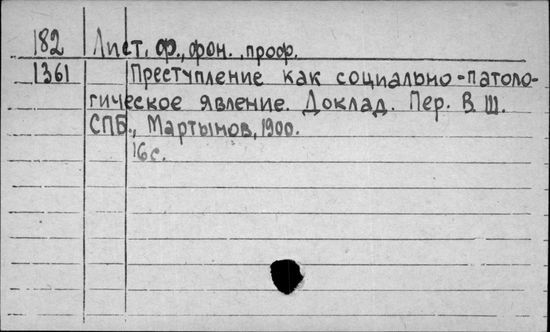 182 Лист, Ф., фон. проф.
1361 Преступление как социально-патоло-
гическое явление. Доклад. Пер. В. Ш.
СПБ., Мартынов, 1900.
16 с.